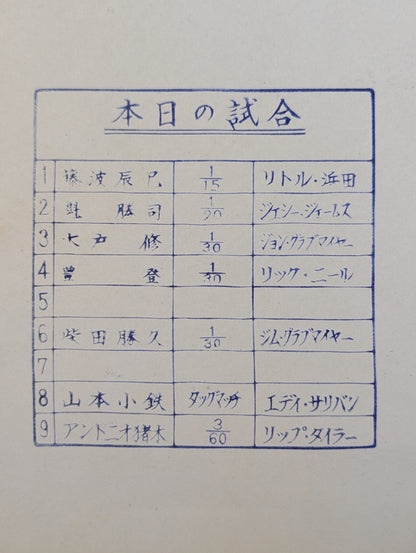 本日の試合
1 藤波辰巳 1/15 リトル・浜田
2 勝司 1/20 ジェシー・ジェームス
3 大戸 修 1/30 ジョン・グラブマイヤー
4 豊 登 1/30 リック・ニール
5
6 柴田勝久 1/30 ジム・グラブマイヤー
7
8 山本小鉄 タッグマッチ エディ・サリバン
9 アントニオ猪木 3/60 リップ・タイラー